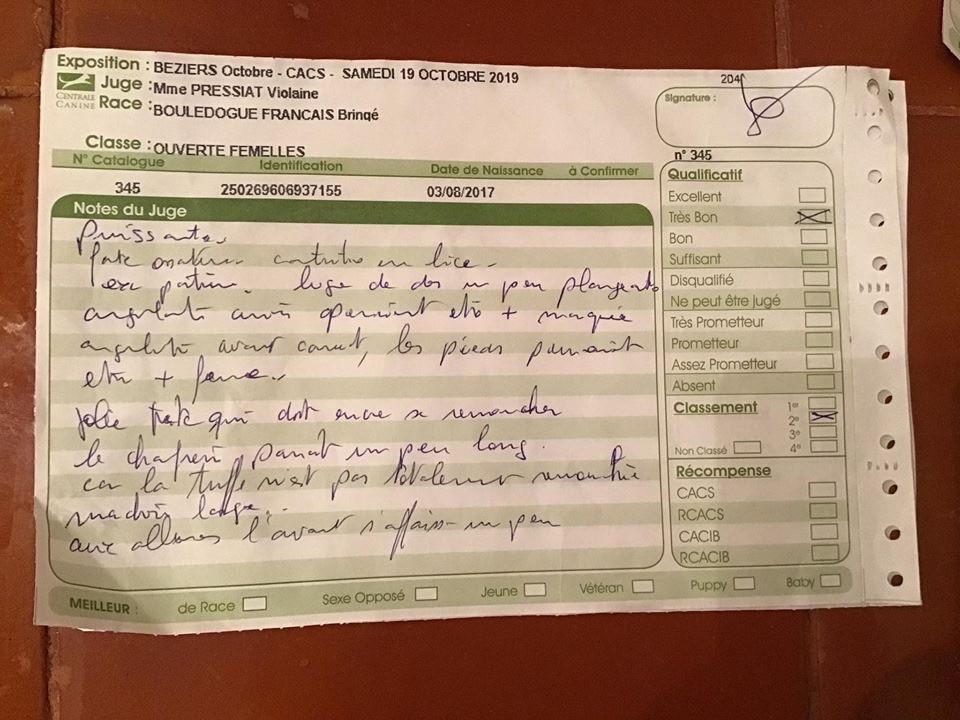 Exposition : BEZIERS Octobre - CACS - SAMEDI 19 OCTOBRE 2019
CENTRALE CANINE
Juge : Mme PRESSIAT Violaine
Race : BOULEDOGUE FRANCAIS Bringé
204
Signature :
Classe : OUVERTE FEMELLES
N° Catalogue Identification Date de Naissance à Confirmer
345 250269606937155 03/08/2017
n° 345
Notes du Juge
Puissante.
construite en lice.
ligne de dos un peu plongeante
angulate pourraient etre + marquée
angulate avant correct, les pieds pourraient
etre + 
Jolie tete qui doit encore se remoucher
le chafrein parait un peu long.
car la truffe n'est pas totalement remontée
machoire large.
aux allures l'avant s'affaisse un peu
Qualificatif
Excellent
Très Bon
Bon
Suffisant
Disqualifié
Ne peut être jugé
Très Prometteur
Prometteur
Assez Prometteur
Absent
Classement
1er
2e
3e
Non Classé 4e
Récompense
CACS
RCACS
CACIB
RCACIB
MEILLEUR : de Race Sexe Opposé Jeune Vétéran Puppy Baby